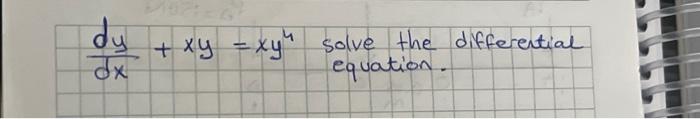 dy/dx + xy = xy⁴ solve the differential
equation.